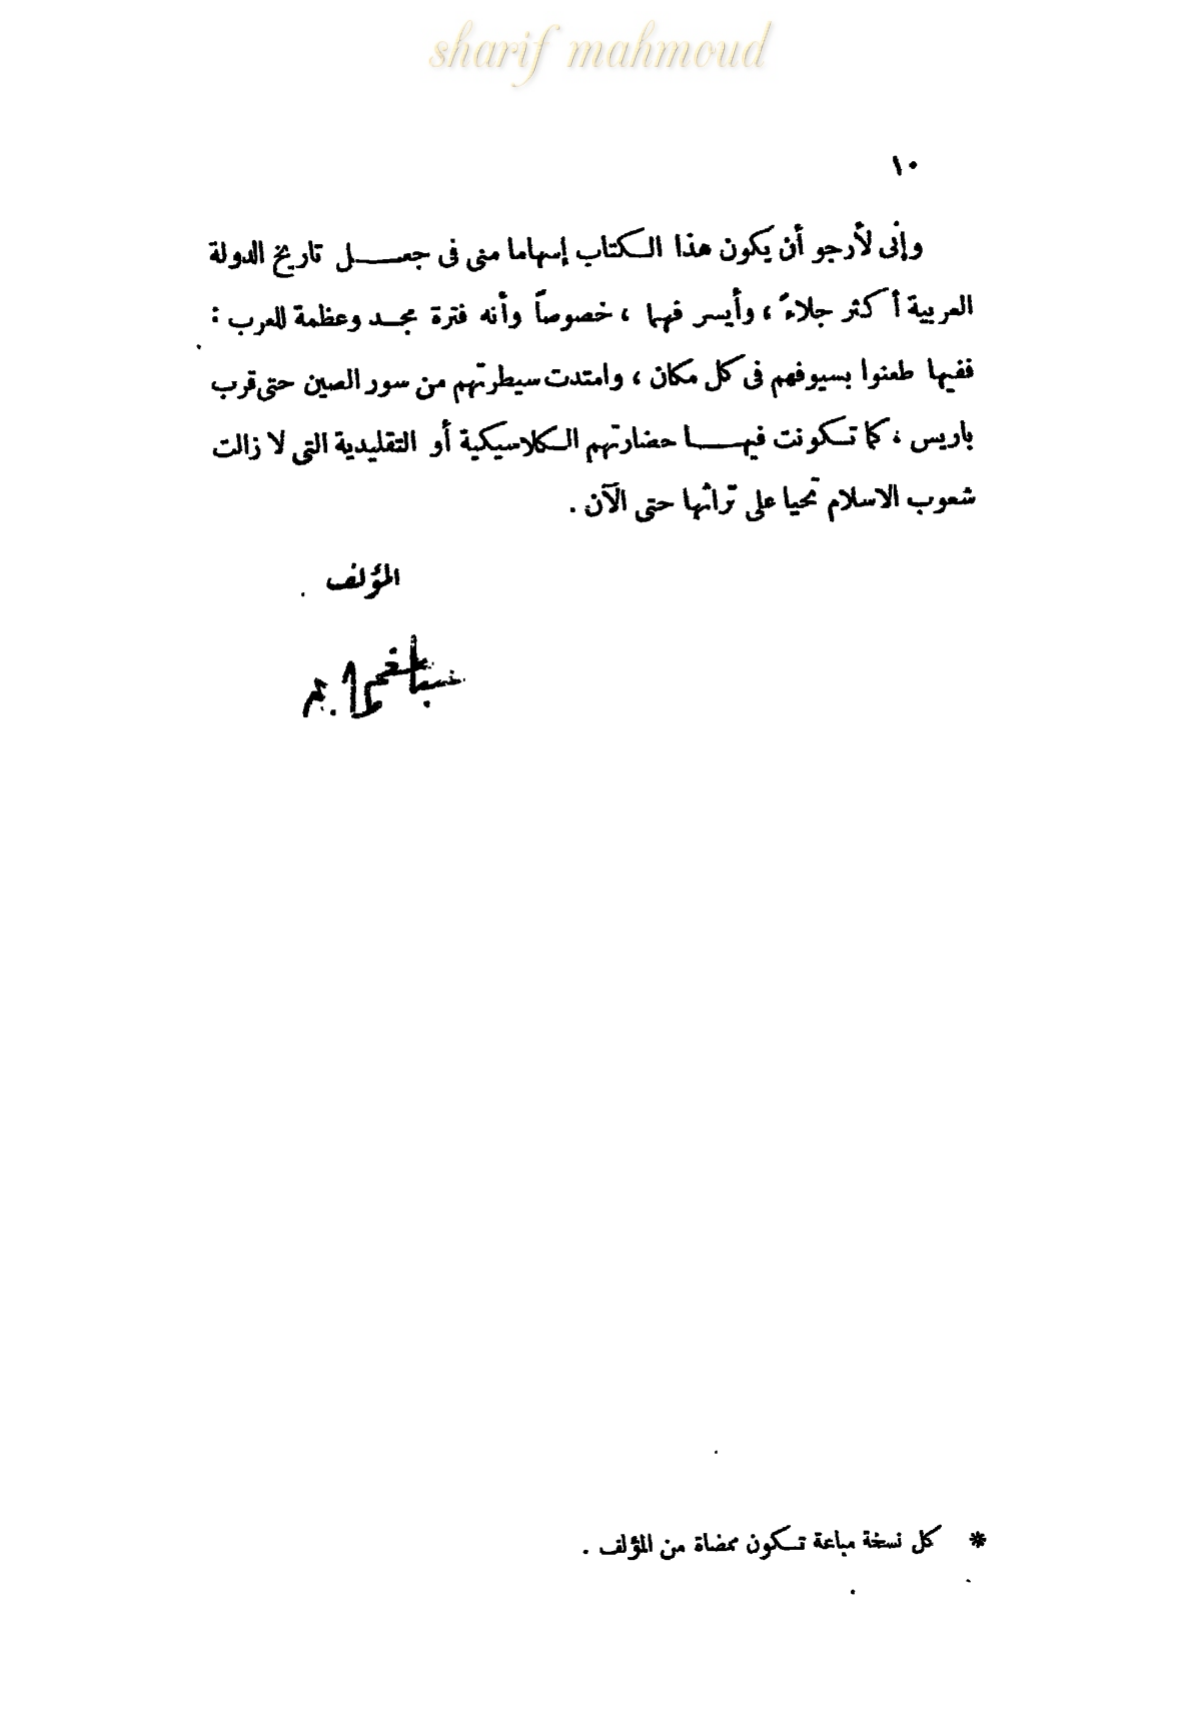 sharif mahmoud
١٠
وإنى لأرجو أن يكون هذا الكتاب إسهاما منى فى جعل تاريخ الدولة
العربية أكثر جلاءً ، وأيسر فهما ، خصوصاً وأنه فترة مجد وعظمة للعرب :
ففيها طعنوا بسيوفهم فى كل مكان ، وامتدت سيطرتهم من سور الصين حتى قرب
باريس ، كما تكونت فيها حضارتهم الكلاسيكية أو التقليدية التى لا زالت
شعوب الاسلام تحيا على تراثها حتى الآن .
المؤلف
* كل نسخة مباعة تكون ممضاة من المؤلف .